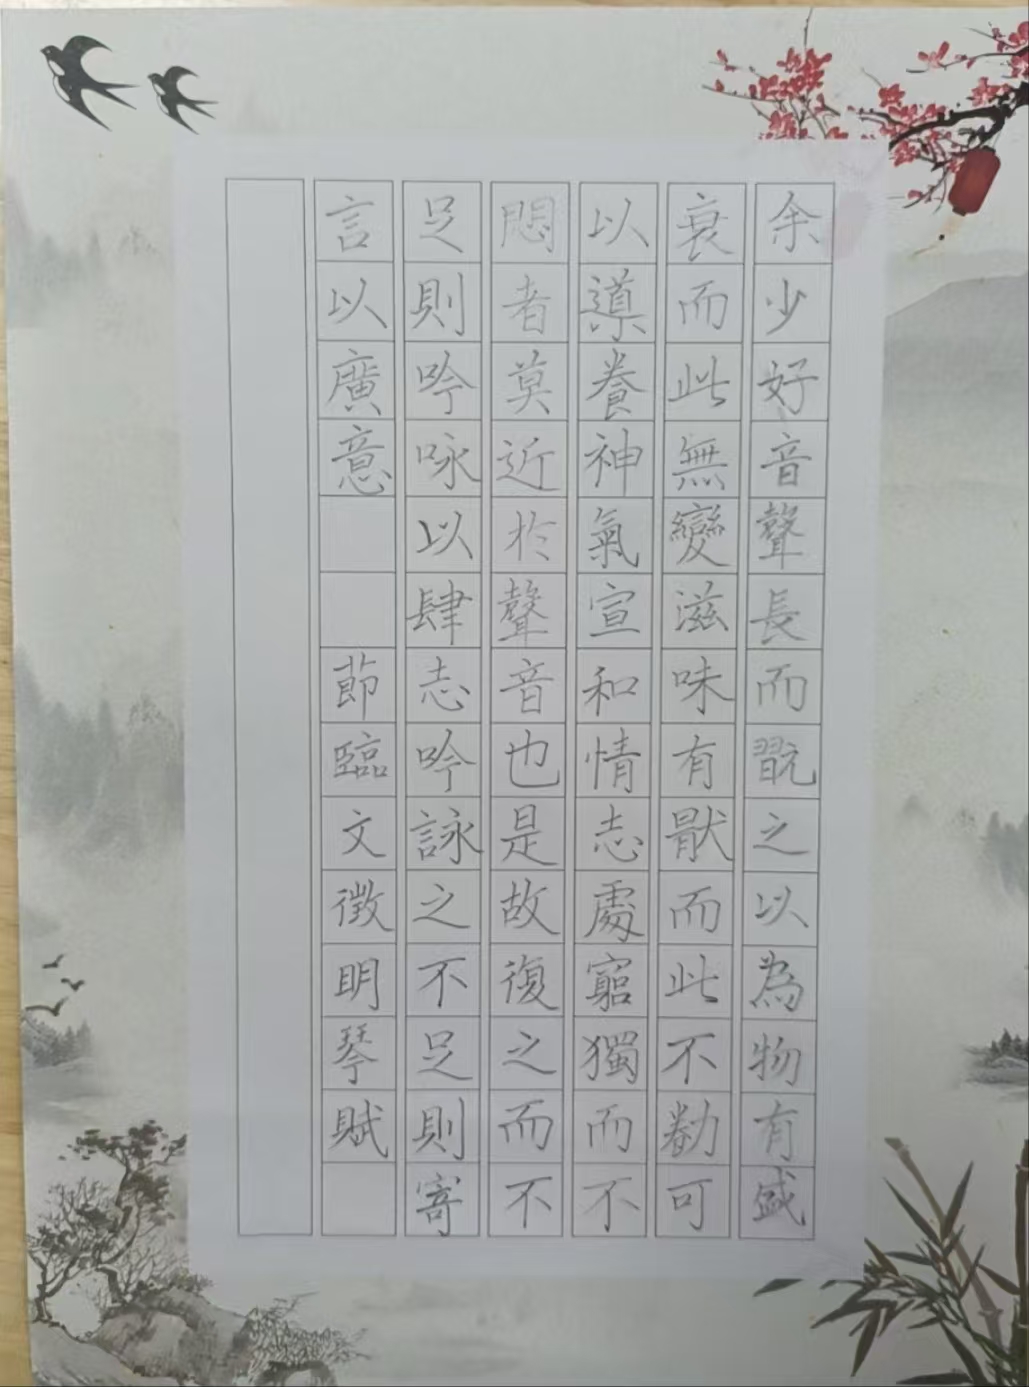 余少好音聲長而翫之以為物有盛
衰而此無變滋味有猒而此不勌可
以導養神氣宣和情志處窮獨而不
悶者莫近於聲音也是故復之而不
足則吟咏以肆志吟詠之不足則寄
言以廣意 節臨文徵明琴賦